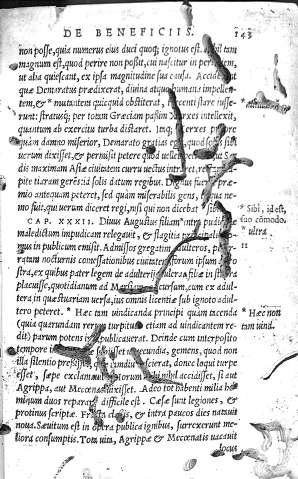 DE BENEFICIIS. 143
non posse, quia numerus eius duci quoq; ignotus est.
magnum est, quod perire non possit, cui nascitur in
ut aba quiescant, ex ipsa magnitudine sua causa. Accide
quæ Demaratus prædixerat, diuina atque humana impellen-
tem, & * mutantem quicquid obstiterat, recenti stare iusse-
runt: stratusq; per totam Græciam passim Xerxes intellexit,
quantum ab exercitu turba distaret. Itaq; Xerxes
quàm damno miserior, Demarato gratias quod solus sibi
uerum dixisset, & permisit petere quod uellet. Petit
dis maximam Asiæ ciuitatem curru uectus intraret, rectam
pite tiaram gerens: id solis datum regibus. Dignus præ-
mio antequam peteret, sed quàm miserabilis gens,
mo fuit, qui uerum diceret regi, nisi qui non dicebat sibi.
CAP. XXXII. Diuus Augustus filiam intra pudi
maledictum impudicam relegauit, & flagitia principalis
mus in publicum emisit. Admissos gregatim adulteros, per-
ratam nocturnis comessationibus ciuitatem, forum ipsum
stra, ex quibus pater legem de adulterijs tulerat, filiæ in
placuisse, quotidianum ad Marsyam cursum, cum ex adul-
tera in quæstuariam uersa, ius omnis licentiæ sub ignoto adul-
tero peteret. * Hæc tam uindicanda principi quàm tacenda
(quia quarundam rerum turpitudo etiam ad uindicantem re-
dit) parum potens iræ publicauerat. Deinde cum interposito
tempore in locum subisset uerecundia, gemens, quod non
illa silentio pressisset, quæ tamdiu nescierat, donec loqui turpe
esset, sæpe exclamauit: Horum mihi nihil accidisset, si aut
Agrippa, aut Mecœnas uixisset. Adeo tot habenti milia ho-
minum duos reparare difficile est. Cæsæ sunt legiones, &
protinus scriptæ. Fracta classis, & intra paucos dies natauit
noua. Sæuitum est in opera publica ignibus, surrexerunt me-
liora consumptis. Tota uita, Agrippæ & Mecœnatis uacauit
locus
* Sibi, id est,
suo cõmodo.
* ultra.
11
* Hæc non
tam uind.